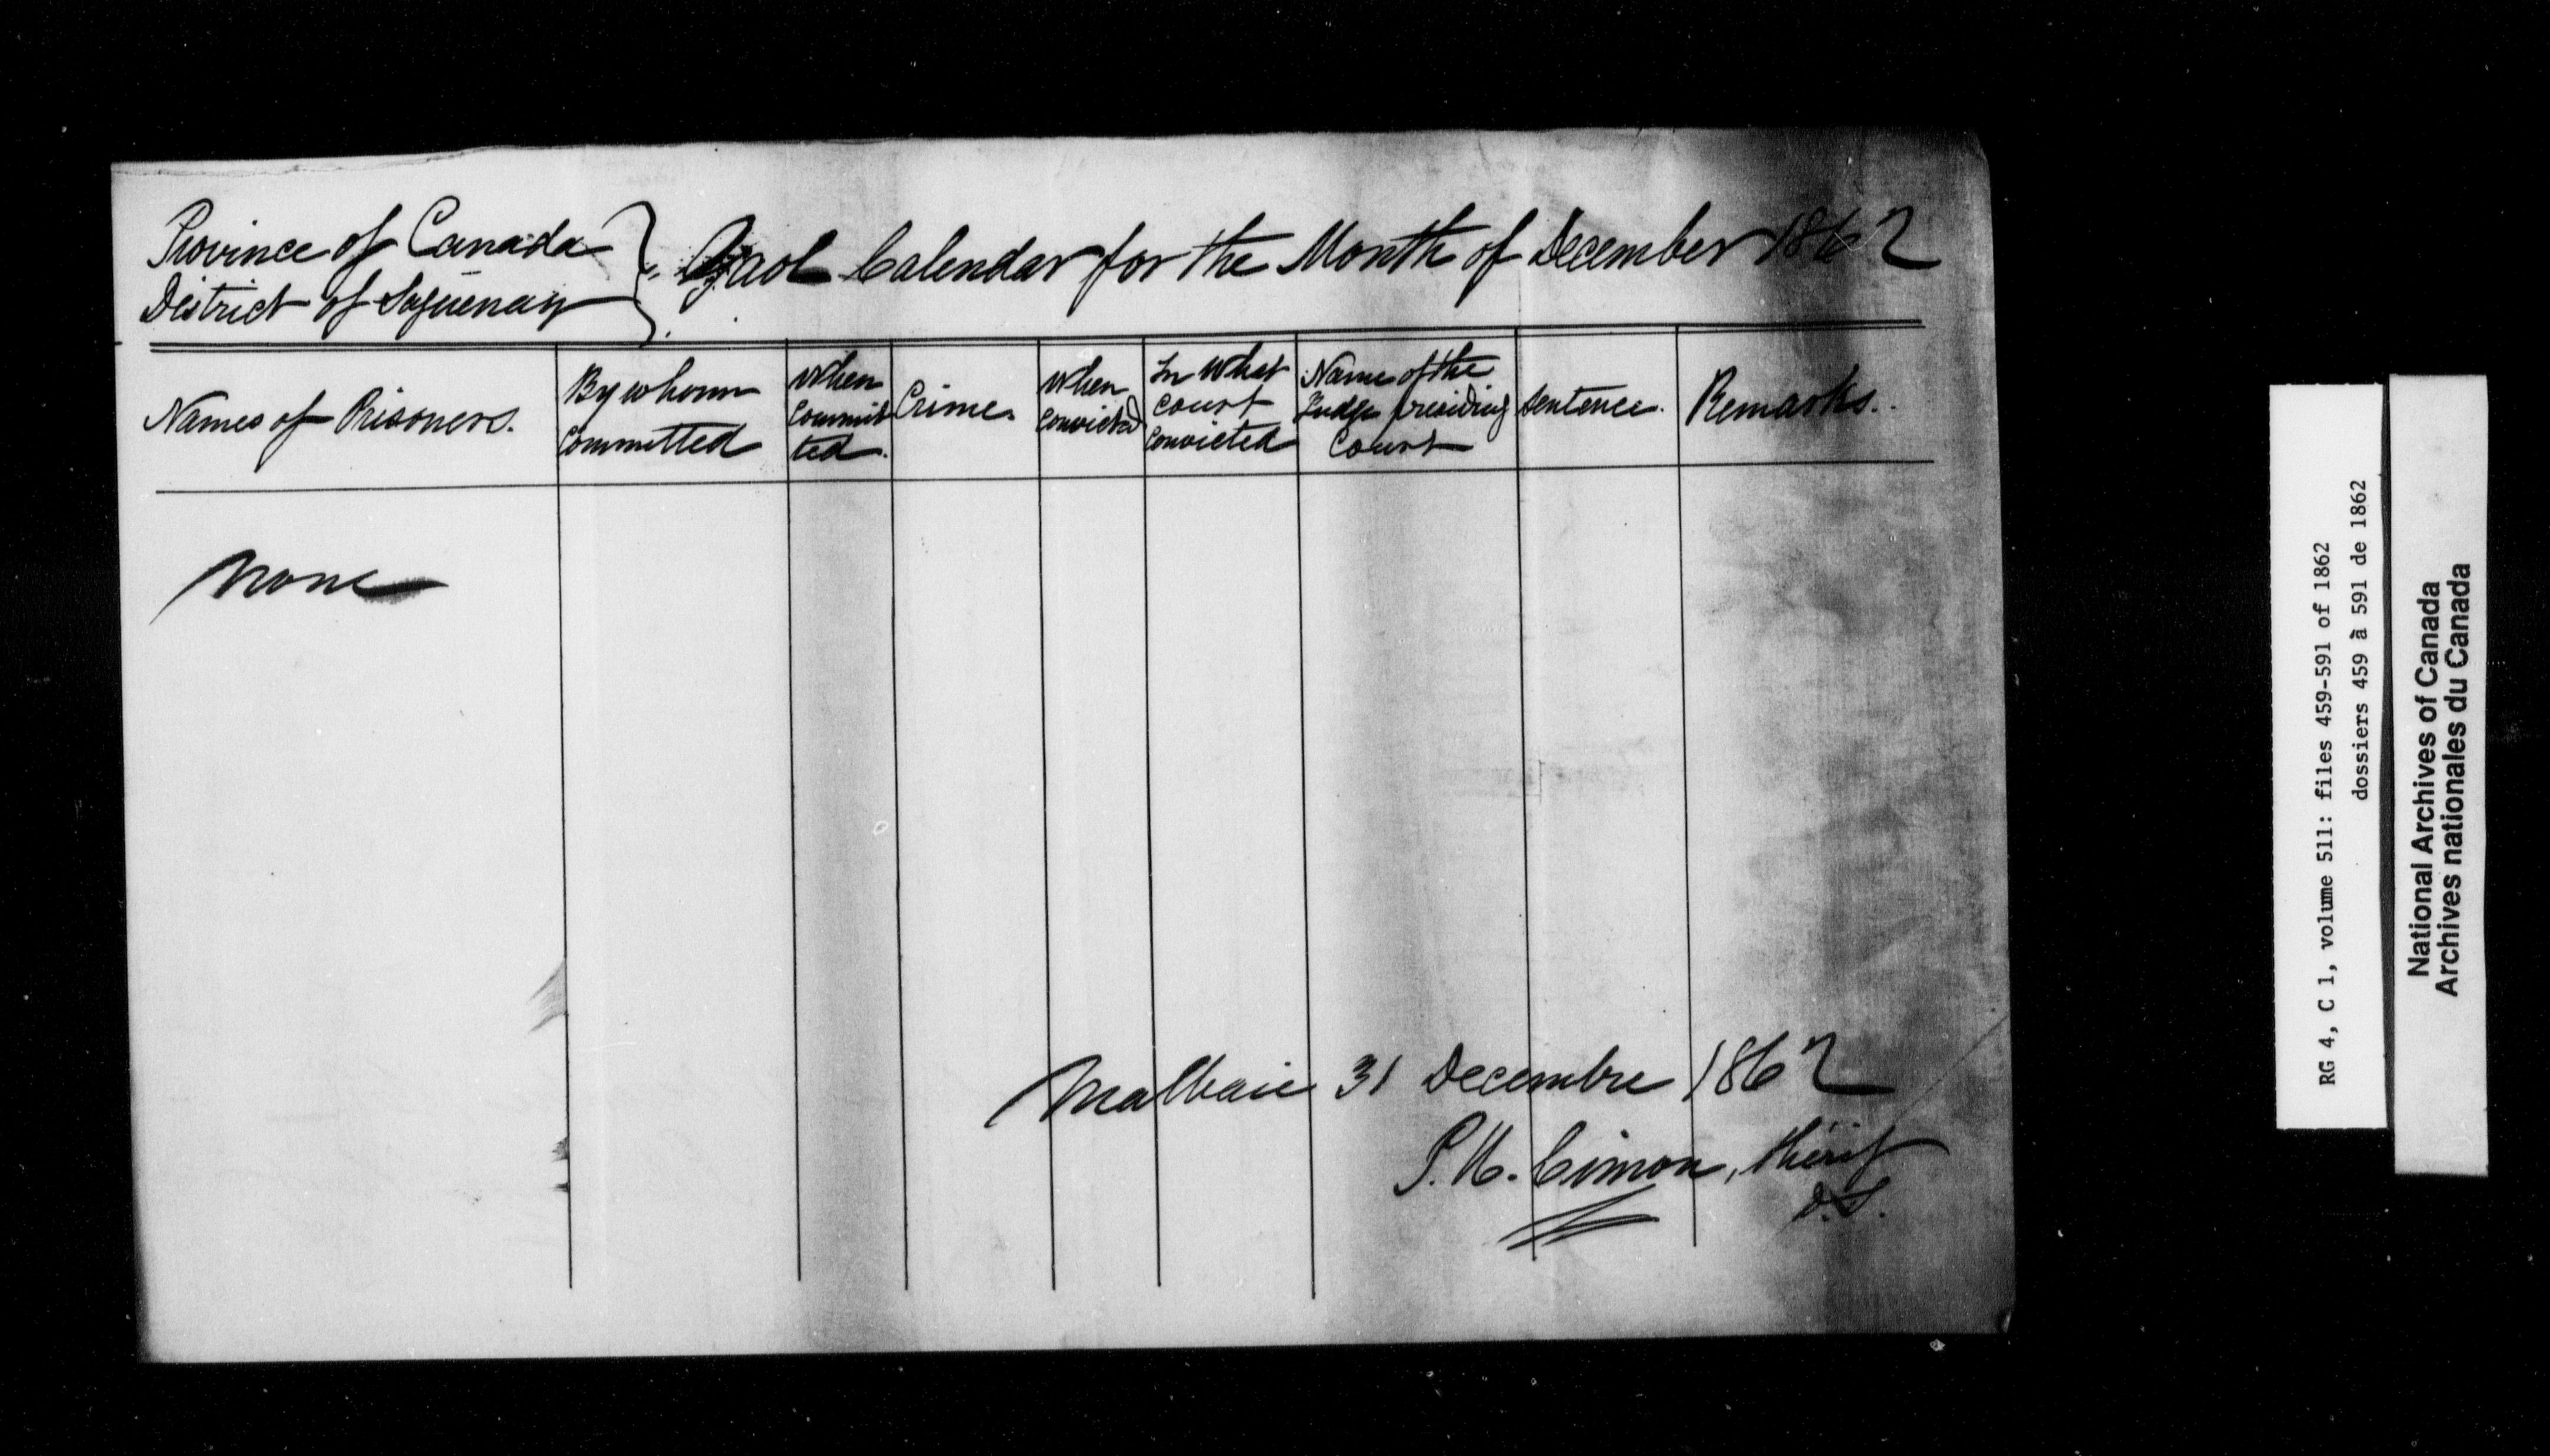 Province of Canada
District of Saguenay
Gaol Calendar for the Month of December 1862
Names of Prisoners.
By whom
Committed
When
Commit
ted.
Crime.
When
Convicted
In What
Court
Convicted
Name of the
Judge presiding
Court
Sentence.
Remarks.
None
Malbaie 31 Decembre 1862
P. H. Cimon, Shérif
D.S.
RG 4, C 1, volume 511: files 459-591 of 1862
dossiers 459 à 591 de 1862
National Archives of Canada
Archives nationales du Canada